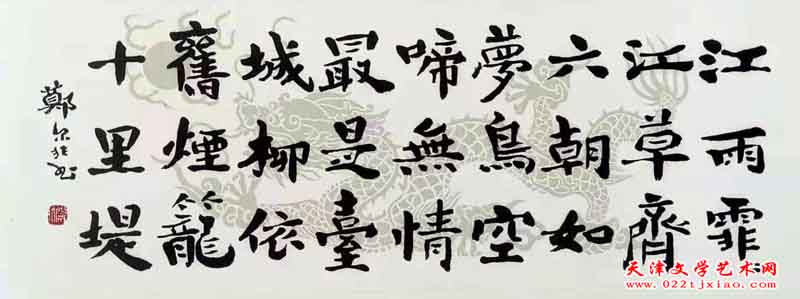 江雨霏〻
江草齊
六朝如
夢鳥空
啼無情
最是臺
城柳依
舊煙籠
十里堤
鄭
天津文学艺术网
www.022tjxiao.com